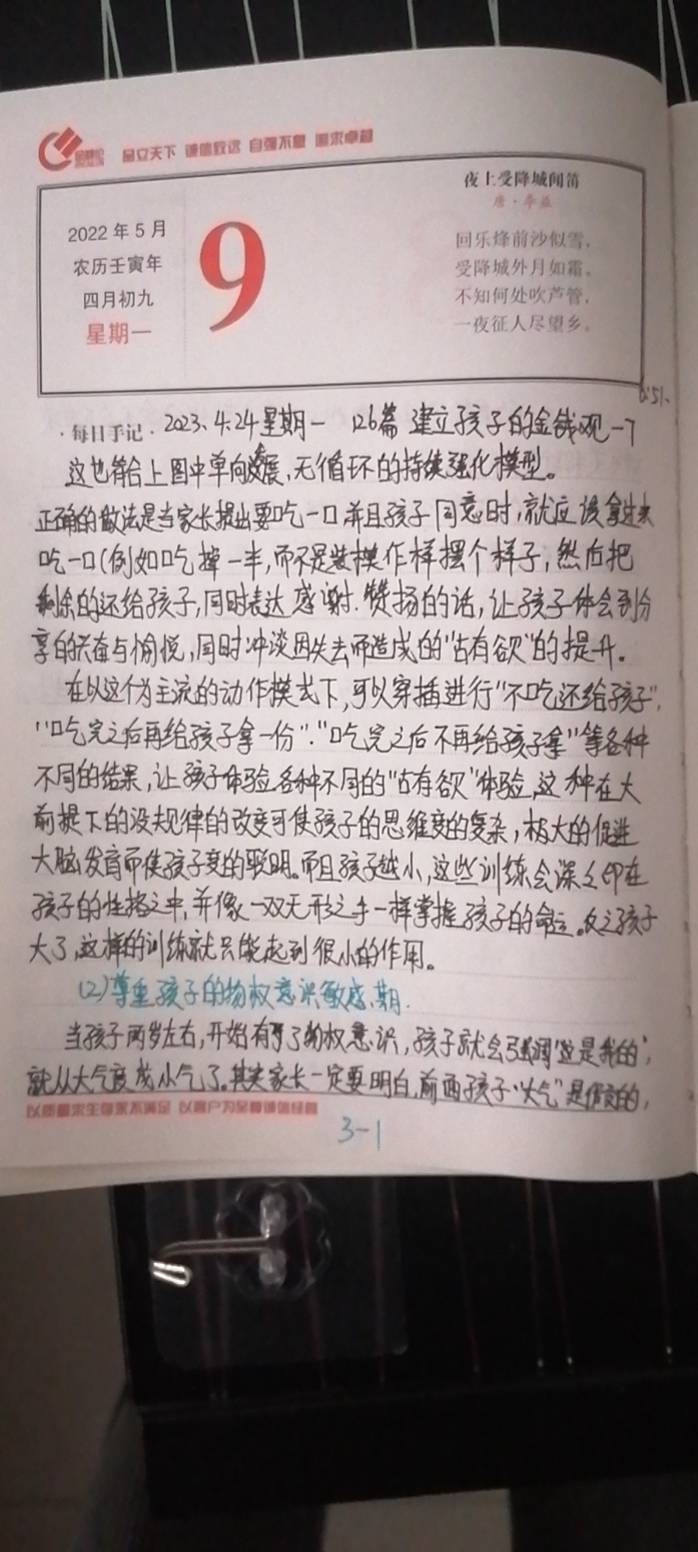 品立天下 诚信致远 自强不息 追求卓越
夜上受降城闻笛
唐·李益
2022年5月
农历壬寅年
四月初九
星期一
9
回乐烽前沙似雪，
受降城外月如霜。
不知何处吹芦管，
一夜征人尽望乡。
·每日手记· 2023、4.24星期一 126篇 建立孩子的金钱观—7
这也符合上图中单向发展，无循环的持续强化模型。
正确的做法是当家长提出要吃一口并且孩子同意时，就应该拿过来
吃一口(例如吃掉一半，而不是装模作样摆个样子，然后把
剩余的还给孩子，同时表达感谢.赞扬的话，让孩子体会到分
享的兴奋与愉悦，同时冲淡因失去而造成的“占有欲”的提升。
在以这个为主流的动作模式下，可以穿插进行“不吃还给孩子”，
“吃完之后再给孩子拿一份”.“吃完之后不再给孩子拿”等各种
不同的结果，让孩子体验各种不同的“占有欲”体验，这种在大
前提下的没规律的改变可使孩子的思维变的复杂，极大的促进
大脑发育而使孩子变的聪明。而且孩子越小，这些训练会深深印在
孩子的性格之中，并像一双无形之手一样掌握孩子的命运。反之孩子
大了，这样的训练就只能起到很小的作用。
(2)尊重孩子的物权意识敏感期.
当孩子两岁左右，开始有了物权意识，孩子就会强调“这是我的”，
就从大气变成小气了。其实家长一定要明白，前面孩子“大气”是假的，
以质量求生存永不满足 以客户为尊诚信经营
3-1